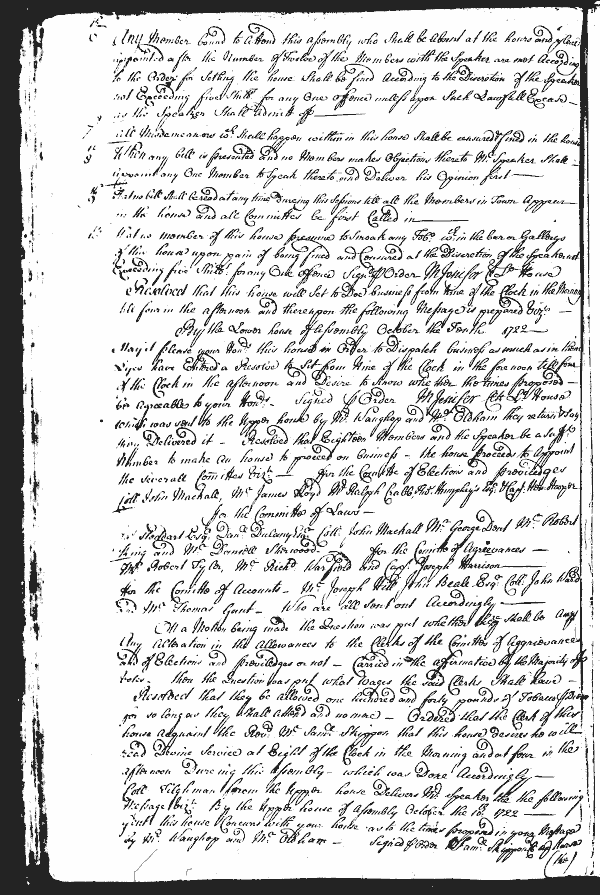 6 Any Member bound to Attend this assembly who shall be Absent at the hours and place
appointed after the Number of Twelve of the Members with the Speaker are met According
to the Order for Setting the house Shall be fined According to the Discretion of the Speaker
not Exceeding five Shill. for any One offence unless upon Such Lawfull Excuse
as the Speaker Shall admitt off
7 all Misdemeanors wch. Shall happen within in this house shall be censured & fined in the house
8 When any bill is presented and no Members makes Objections thereto Mr. Speaker Shall
appoint any One Member to Speak thereto and Deliver his Opinion first
9 That no bill shall be read at any time during this Sessions till all the Members in Town Appear
in the house and all Committes be first Called in
10 That no member of this house presume to Smoak any Tobo. in the bar or Gallerys
of this house upon pain of being fined and Censured at the Discretion of the Speaker not
Exceeding five Shill. for any One offence Signd. p Order M Jenifer Cl Lo House
Resolved that this house will Set to Doe business from nine of the Clock in the Morning
till four in the afternoon and thereupon the following Message is prepared Vizt.
By the Lower house of Assembly October the Tenth 1722
May it please your Honrs. this house in Order to Dispatch business as much as in them
Lyes have Entred a Resolve to Set from nine of the Clock in the forenoon till four
of the Clock in the afternoon and Desire to know whether the times proposed
be Agreeable to your Honrs. Signed p Order M Jenifer Clk Lo House
which was sent to the upper house by Mr. Waughop and Mr. Oldham they return & say
they Delivered it Resolved that Eighteen Members and the Speaker be a Suff.
Number to make an house to proceed on business the house proceeds to Appoint
the Severall Comittes Vizt. for the Comitte of Elections and priviledges
Coll. John Mackall, Mr. James Lloyd Mr. Ralph Crabb
for the Committe of Laws
Stoddart Esqr. Danl. Dulany Esqr. Coll. John Mackall Mr. George Dent Mr. Robert
King and Mr. Daniell Sherwood for the Comitte of Agrievances
Mr. Robert Tyler, Mr. Richd. Warfield and Capt. Joseph Harrison
for the Comitte of Accounts Mr. Joseph Hill John Beale Esqr. Coll. John Ward
and Mr. Thomas Gant Who are all sent out Accordingly
On a Motion being made the Question was put whether there shall be any
Any Alteration in the Allowances to the Clerks of the Comittes of Aggrievances
and of Elections and priviledges or not Carried in the affirmative by the Majority of
votes. then the Question was put what Wages the said Clerks Shall have
Resolved that they be allowed one hundred and forty pounds of Tobacco p Diem
for so long as they shall attend and no more Ordered that the Clerk of this
house acquaint the Revd. Mr. Saml. Skippon that this house desires he will
read Devine Service at Eight of the Clock in the Morning and at four in the
afternoon Dureing this assembly which was Done Accordingly
Coll Tilghman from the Upper house Delivers Mr. Speaker the the following
Message Vizt. By the Upper house of Assembly October the 10. 1722
Gent this house Concurs with your house as to the times proposed in your Message
by Mr. Waughop and Mr. Oldham Signed p Order